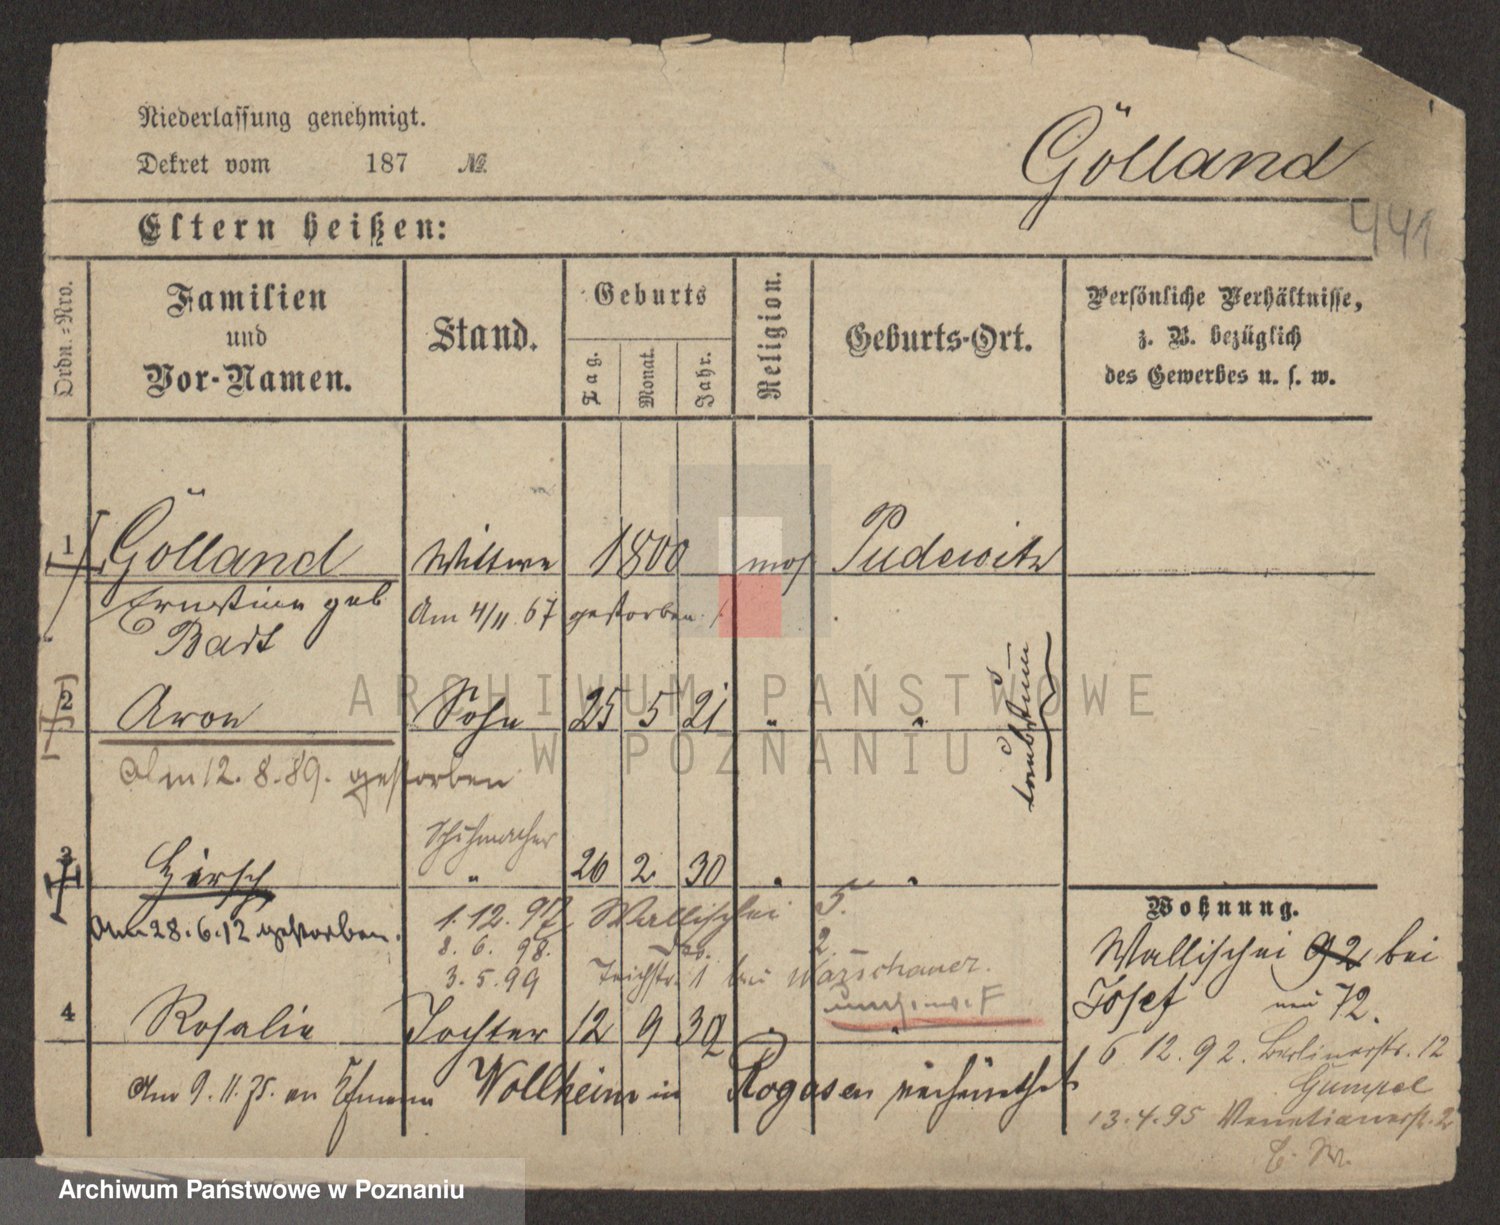 Niederlassung genehmigt.
Dekret vom 187 №
Gölland
441
Eltern heißen:
Ordn.-Nro.
Familien
und
Vor-Namen.
Stand.
Geburts
Tag.
Monat.
Jahr.
Religion.
Geburts-Ort.
Persönliche Verhältnisse,
z. B. bezüglich
des Gewerbes u. s. w.
1 Gölland Wittwe 1800 mos Pudewitz
Ernestine geb Am 4/11. 67 gestorben
Badt
2 Aron Sohn 25 5 21 " "
taubstum
Am 12. 8. 89. gestorben
Schuhmacher
3 Hirsch " 26 2 30 " "
Am 28. 6. 12 gestorben.
1. 12. 97 Wallischei 5.
8. 6. 98. do. 2
3. 5. 99 Teichstr. 1 bei Warschauer.
4 Rosalie Tochter 12 9 32 " "
Am 9. 11. 75. an Wollheim in Rogasen verheirathet
Wohnung.
Wallischei 92 bei
Josef neu 72.
6. 12. 92. Berlinerstr. 12
Gumpel
13. 4. 95 Venetianerstr. 2
ARCHIWUM PAŃSTWOWE
W POZNANIU
Archiwum Państwowe w Poznaniu